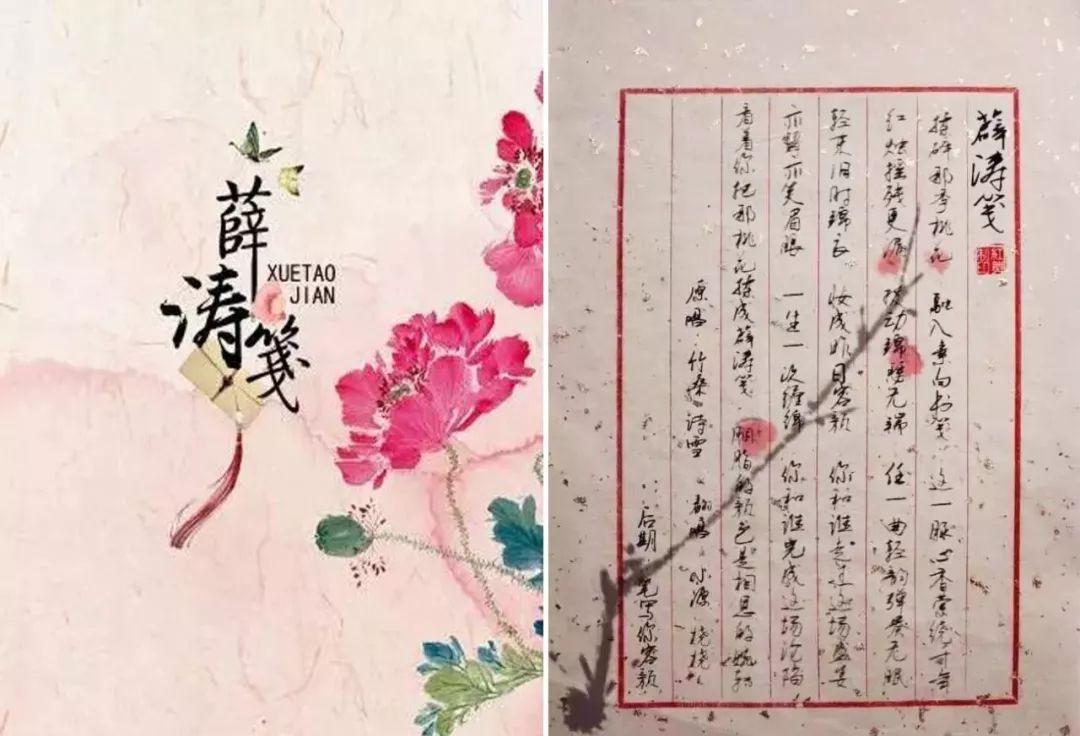 薛涛笺
XUETAO
JIAN
薛涛笺
揉碎那季桃花 融入素白书笺 这一脉心香萦绕可
红烛摇残更漏 拨动锦瑟无端 任一曲轻韵弹奏无眠
轻束旧时锦衣 妆成昨日容颜 你和谁走过这场盛宴
亦颦亦笑眉眼 一生一次缠绵 你和谁完成这场沦陷
看着你把那桃花揉成薛涛笺 胭脂的颜色是相思的
原唱：竹桑 诗雪 翻唱：水源 桡桡
后期：笔写你容颜